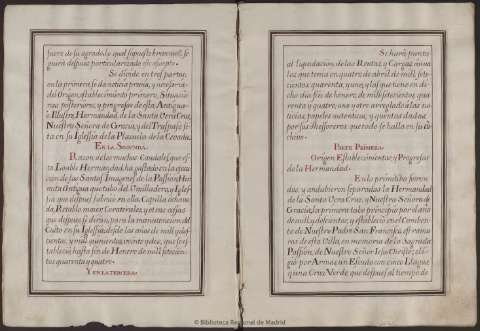 fuera de su agrado; lo qual supuesto
guiera despues particularizado
Se divide en tres partes,
en la primera se da noticia
del Origen, establecimiento primero, Situacio-
nes posteriores, y progresos de esta Antigua,
è Illustre Hermandad, de la Santa Vera Cruz,
Nuestra Señora de Gracia, y del Traspaso, si-
ta en su Iglesia de la Plazuela de la Cevada.
En la Segunda.
Razon de los muchos Caudales, que es-
ta Loable Hermandad, ha gastado en la execu-
cion de las Santas Imagenes de la Passion, Her-
mita Antigua que tubo del Umilladero, y Igle-
sia que despues fabricò en ella, Capilla ochava-
da, Retablo mayor, Coraterales, y otras cosas
que despues se diràn, para la manutencion del
Culto en su Iglesia, desde los años de mil y qui-
entos, y mil quinientos, veinte y dos, que se es-
tableciò, hasta fin de Henero de mil, setecien-
tos, quarenta y quatro.
Y en la tercera.
Se harà puntu
al liquidacion, de las Rentas, y Cargas, con
las que tenia en quatro de abril de mil, sete-
cientos, quarenta, y uno, y las que tiene en di-
cho dia fin de henero, de mil, setecientos, qua-
renta y quatro, uno y otro arreglado à las no-
ticias, papeles autenticos, y quentas dadas
por sus thesoreros, que todo se halla en su Ar-
chivo.
Parte Primera.
Origen, Establecimientos, y Progresos
de la Hermandad.
En lo primitibo fueron
dos, y andubieron separadas la Hermandad
de la Santa Vera Cruz, y Nuestra Señora de
Gracia, la primera tubo principio por el año
de mil, y doscientos; y estableciò en el Comben-
to de Nuestro Padre San Francisco, extra mu-
ros de esta Villa, en memoria de la Sagrada
Pasion, de Nuestro Señor Iesu Christo; eli-
giò por Armas un Escudo con cinco Llagas
y una Cruz Verde que despues al tiempo de
© Biblioteca Regional de Madrid